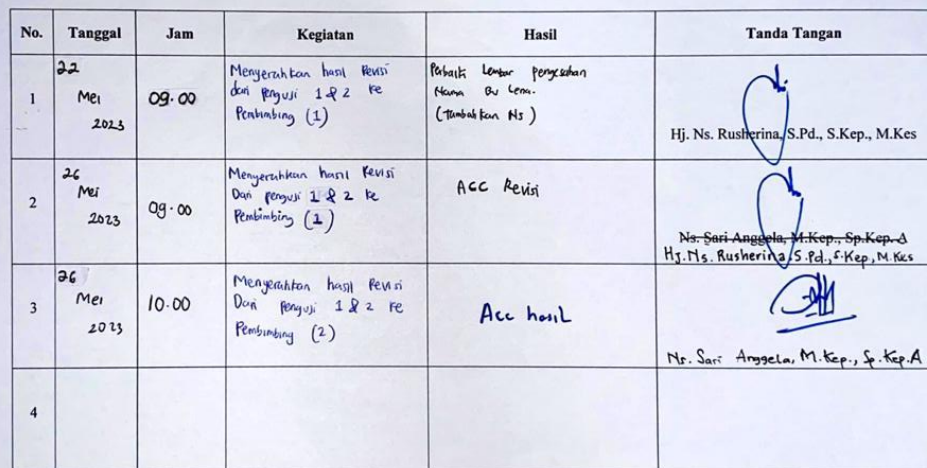 No. Tanggal Jam Kegiatan Hasil Tanda Tangan
1
22
Mei
2023
09.00
Menyerahkan hasil Revisi
dari Penguji 1 & 2 ke
Pembimbing (1)
Perbaiki Lembar pengesahan
Nama Bu Lena.
(Tambahkan Ns)
Hj. Ns. Rusherina, S.Pd., S.Kep., M.Kes
2
26
Mei
2023
09.00
Menyerahkan hasil Revisi
Dari penguji 1 & 2 ke
Pembimbing (1)
ACC Revisi
Ns. Sari Anggela, M.Kep., Sp.Kep.A
Hj.Ns. Rusherina, S.Pd., S.Kep, M.Kes
3
26
Mei
2023
10.00
Menyerahkan hasil Revisi
Dari Penguji 1 & 2 ke
Pembimbing (2)
Acc hasil
Ns. Sari Anggela, M.Kep., Sp.Kep.A
4